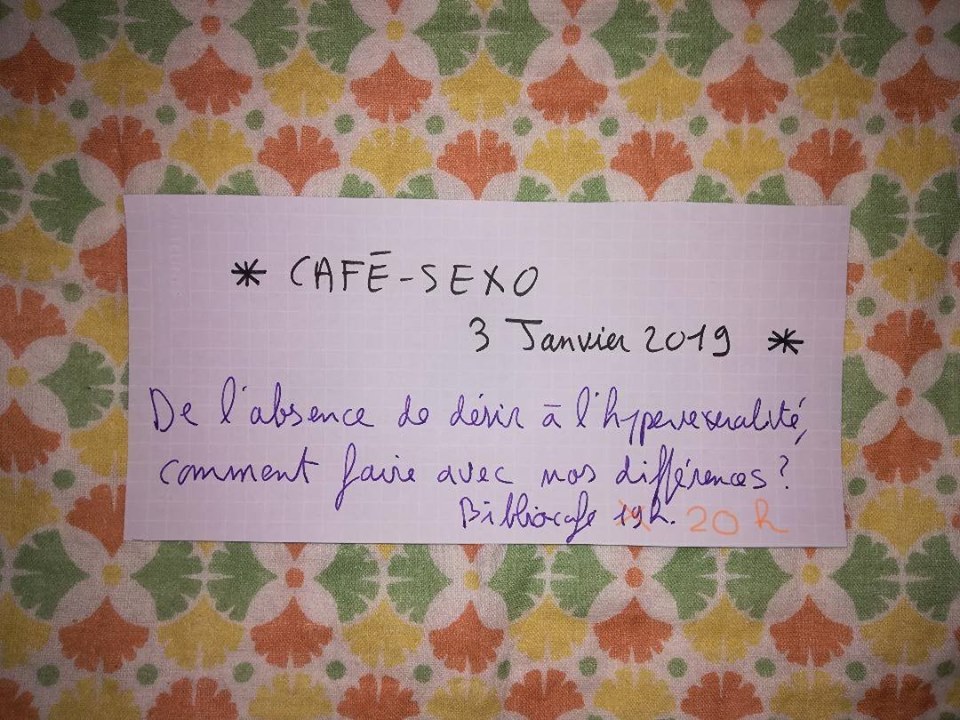 * CAFÉ-SEXO
3 Janvier 2019 *
De l'absence de désir à l'hypersexualité,
comment faire avec nos différences?
Bibliocafé 19h. 20 h